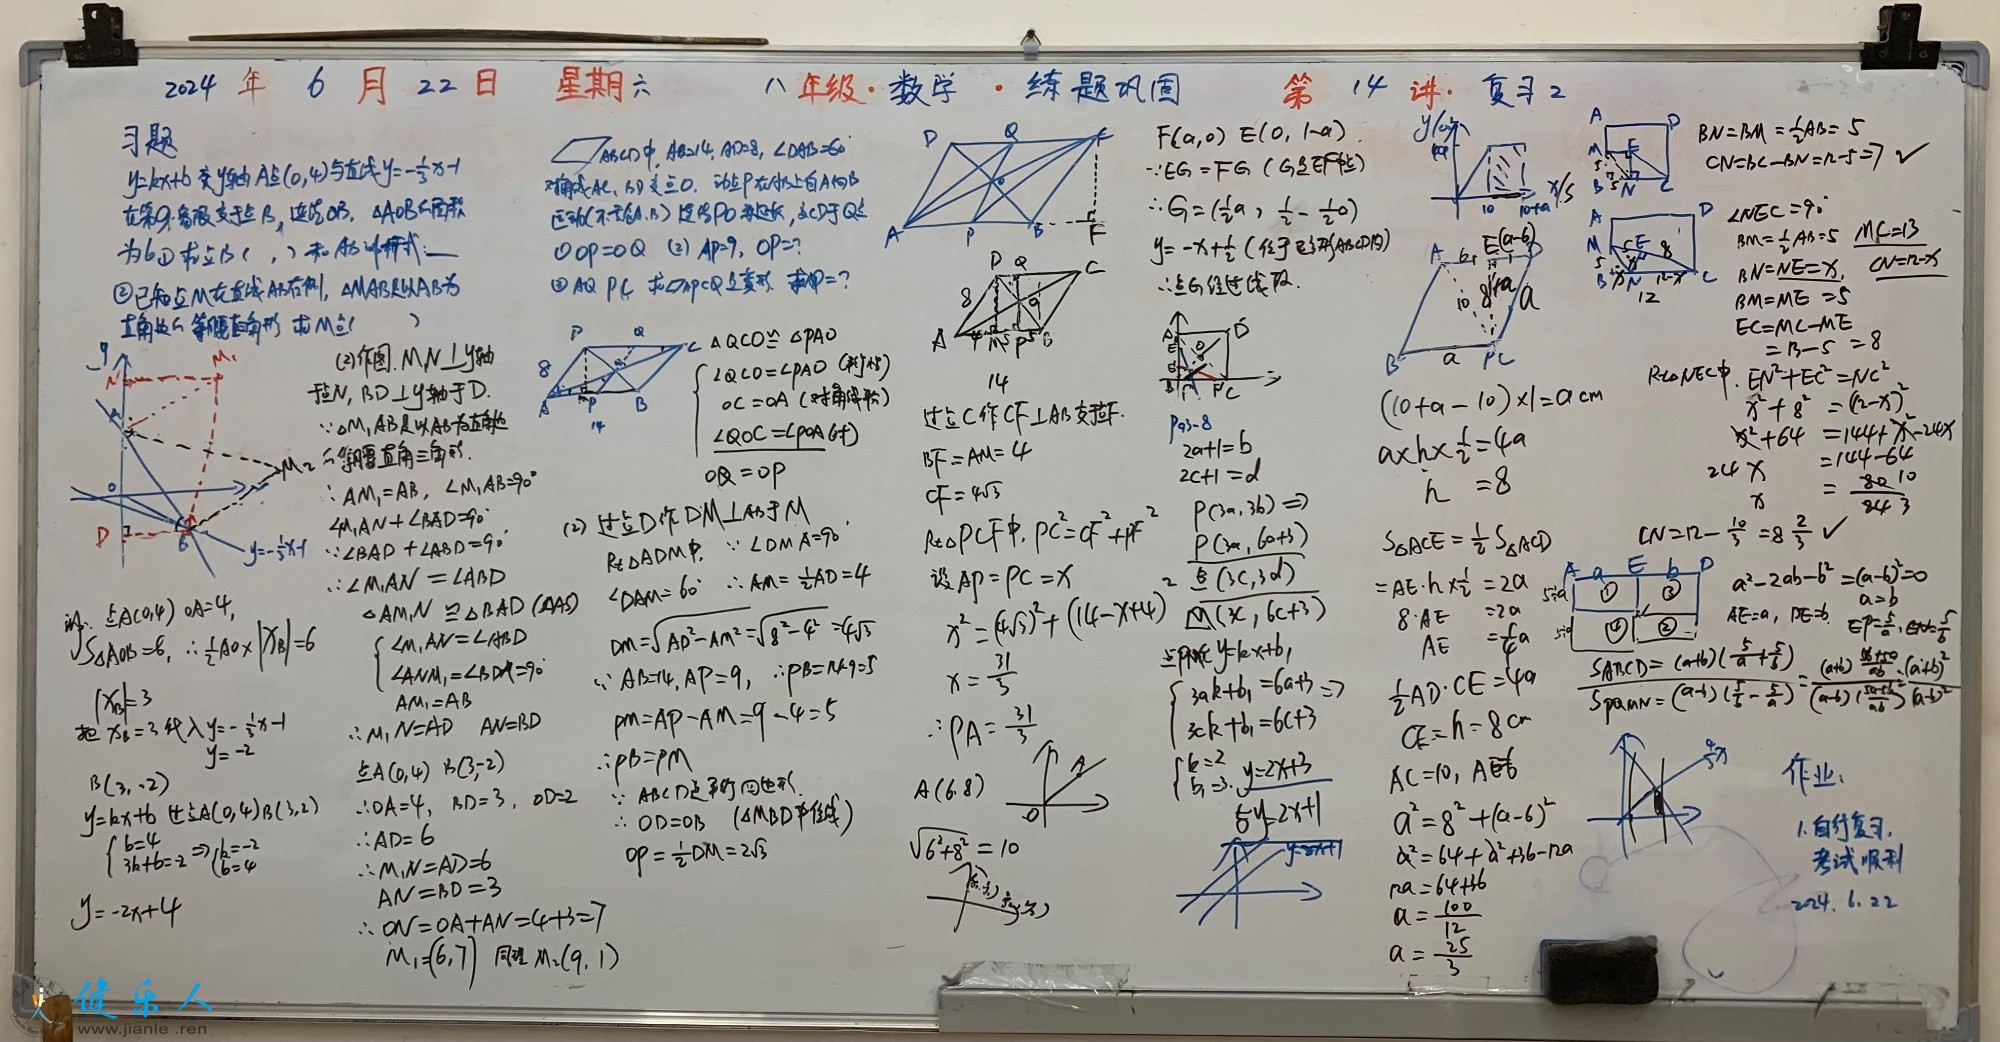 2024 年 6 月 22 日 星期六 八年级·数学·练题巩固 第 14 讲·复习2
习题
y=kx+b 交y轴A点(0,4)与直线y=-1/3x-1
在第四象限交于点B, 连结OB, △AOB的面积
为6 ① 求点B( , ) 和 AB的解析式
②已知点M在直线AB右侧, △MAB是以AB为
直角边的等腰直角形 求M点( )
y
N
M₁
A
O
M₂
D
B
y=-1/3x-1
解: 点A(0,4) OA=4,
S△AOB=6, ∴1/2AO×|xB|=6
|xB|=3
把 xB=3代入y=-1/3x-1
y=-2
B(3,-2)
y=kx+b 过点A(0,4)B(3,2)
{b=4
3k+b=-2 ⇒ {k=-2
b=4
y=-2x+4
(2)作图. MN⊥y轴
于点N, BD⊥y轴于D.
∵△M₁AB是以AB为直角边
的等腰直角三角形.
∴AM₁=AB, ∠M₁AB=90°
∠M₁AN+∠BAD=90°
∵∠BAD+∠ABD=90°
∴∠M₁AN=∠ABD
△AM₁N≌△BAD(AAS)
{∠M₁AN=∠ABD
∠ANM₁=∠BDA=90°
AM₁=AB
∴M₁N=AD AN=BD
点A(0,4) B(3,-2)
∴OA=4, BD=3, OD=2
∴AD=6
∴M₁N=AD=6
AN=BD=3
∴ON=OA+AN=4+3=7
M₁=(6,7) 同理 M₂(9,1)
▱ABCD中, AB=14, AD=8, ∠DAB=60°
对角线AC, BD交点O. 动点P在AB上自A向B
运动(不含A,B)连结PO并延长,交CD于Q点
①OP=OQ (2) AP=9, OP=?
③AQ PC 求▱APCQ是菱形 求AP=?
8
14
△QCO≌△PAO
{∠QCO=∠PAO
OC=OA
∠QOC=∠POA
OQ=OP
(2) 过点D作DM⊥AB于M
Rt△ADM中, ∵∠DMA=90°
∠DAM=60° ∴AM=1/2AD=4
DM=√AD²-AM²=√8²-4²=4√3
∵AB=14, AP=9, ∴PB=14-9=5
PM=AP-AM=9-4=5
∴PB=PM
∵ABCD是平行四边形.
∴OD=OB (△MBD中位线)
OP=1/2DM=2√3
D Q C
A P B F
D Q C
8
A M P B
14
过点C作CF⊥AB交于F.
BF=AM=4
CF=4√3
Rt△PCF中, PC²=CF²+PF²
设AP=PC=x
x²=(4√3)²+(14-x+4)²
x=31/3
∴PA=31/3
A(6.8)
A
O
√6²+8²=10
F(a,0) E(0,1-a)
∵EG=FG
∴G=(1/2a, 1/2-1/2a)
y=-x+1/2
∴点G经过线段.
P93-8
2a+1=b
2c+1=d
P(3a,3b)⇒
P(3a,6a+3)
(3c,3d)
M(3c,6c+3)
y=kx+b₁
{3ak+b₁=6a+3⇒
3ck+b₁=6c+3
{k=2
b₁=3. y=2x+3
与y=2x+1
y=2x+1
10 10+a x/s
A 6 E (a-6) D
10 8 a
B a C
(10+a-10)×1=a cm
a×h×1/2=4a
h=8
S△ACE=1/2S△ACD
=AE·h×1/2=2a
8·AE=2a
AE=1/4a
1/2AD·CE=4a
CE=h=8cm
AC=10, AE=6
a²=8²+(a-6)²
a²=64+a²+36-12a
12a=64+36
a=100/12
a=25/3
BN=BM=1/2AB=5
CN=BC-BN=12-5=7 ✓
∠NEC=90°
BM=1/2AB=5 MC=13
BN=NE=x, CN=12-x
BM=ME=5
EC=MC-ME
=13-5=8
Rt△NEC中. EN²+EC²=NC²
x²+8²=(12-x)²
x²+64=144+x²-24x
24x=144-64
x=80/24 10/3
CN=12-10/3=8 2/3 ✓
A a E b D
① ③
④ ②
a²-2ab-b²=(a-b)²=0
a=b
AE=a, DE=b.
作业:
1.自行复习,
考试顺利
2024.6.22
健乐人
www.jianle.ren